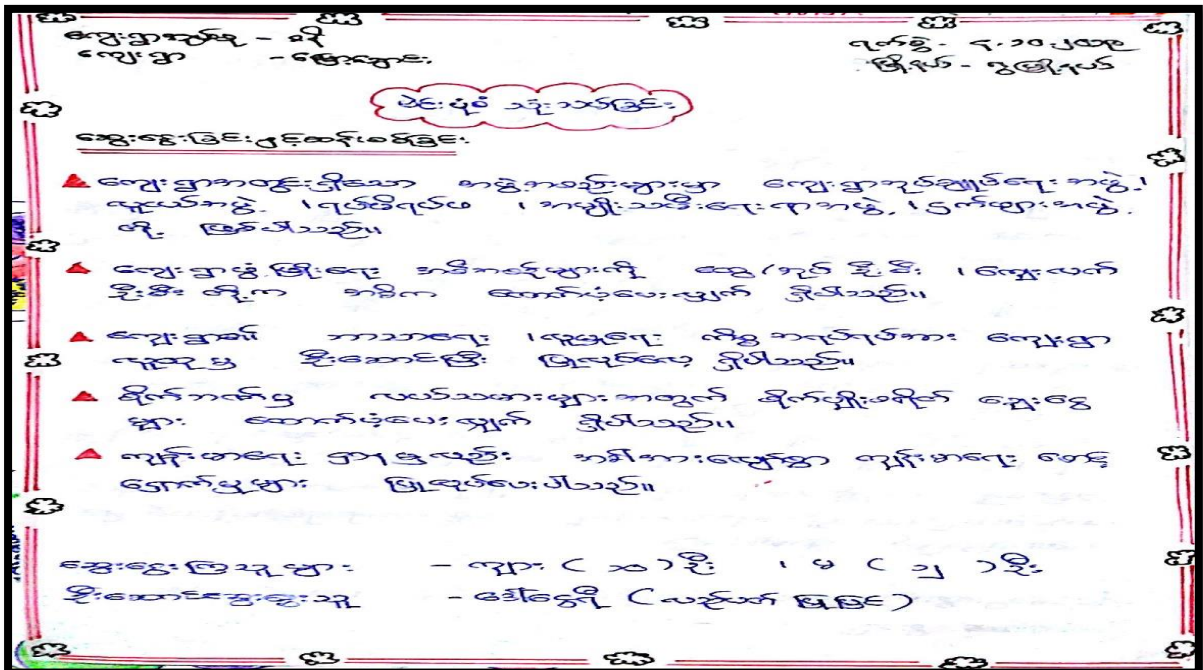 ကျေးရွာအုပ်စု - စနဲ
ကျေးရွာ - မြောချောင်း
ရက်စွဲ - ၎.၁၀.၂၀၁၉
မြို့နယ် - ဂွမြို့နယ်
မဲင်းပုံစံ သုံးသပ်ခြင်း
ဆွေးနွေးခြင်းနှင့်ဆန်းစစ်ခြင်း
ကျေးရွာအတွင်းရှိသော အဖွဲ့အစည်းများမှာ ကျေးရွာအုပ်ချုပ်ရေးအဖွဲ့၊
လူငယ်အဖွဲ့၊ ရပ်မိရပ်ဖ ၊ အမျိုးသမီးရေးရာအဖွဲ့၊ ငှက်ဖျားအဖွဲ့
တို့ ဖြစ်ပါသည်။
ကျေးရွာဖွံ့ဖြိုးရေး အစီအစဉ်များကို ထွေ/အုပ် ဦးစီး ၊ ကျေးလက်
ဦးစီး တို့က အဓိက ထောက်ပံ့ပေးလျှက် ရှိပါသည်။
ကျေးရွာ၏ ဘာသာရေး ၊လူမှုရေး ကိစ္စအရပ်ရပ်အား ကျေးရွာ
လူထုမှ ဦးဆောင်ပြီး ပြုလုပ်လေ့ ရှိပါသည်။
စိုက်ဘဏ်မှ လယ်သမားများအတွက် စိုက်ပျိုးစရိတ် ချေးငွေ
များ ထောက်ပံ့ပေးလျှက် ရှိပါသည်။
ကျန်းမာရေး ဌာနမှလည်း အခါအားလျော်စွာ ကျန်းမာရေး စောင့်
ရှောက်မှုများ ပြုလုပ်ပေးပါသည်။
ဆွေးနွေးကြသူများ - ကျား ( ၁၀ ) ဦး ၊ မ ( ၁၂ ) ဦး
ဦးဆောင်ဆွေးနွေးသူ - ဒေါ်ငွေရီ ( လည်ပတ် မြို့ပြင် )